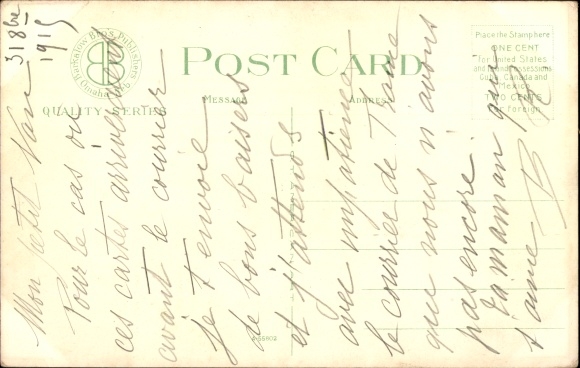 POST CARD
Barkalow Bros. Publishers
Omaha
QUALITY SERIES
MESSAGE
ADDRESS
Place the Stamp here
ONE CENT
for United States
and Island Possessions
Cuba, Canada and
Mexico
TWO CENTS
for Foreign
A-55802
31 8bre
1915
Mon petit
Pour le cas où
ces cartes arriveraient
avant le courrier
je t'envoie
de bons baisers
et j'attends
avec impatience
le courrier de
que nous n'avons
pas encore
Ta maman qui
t'aime